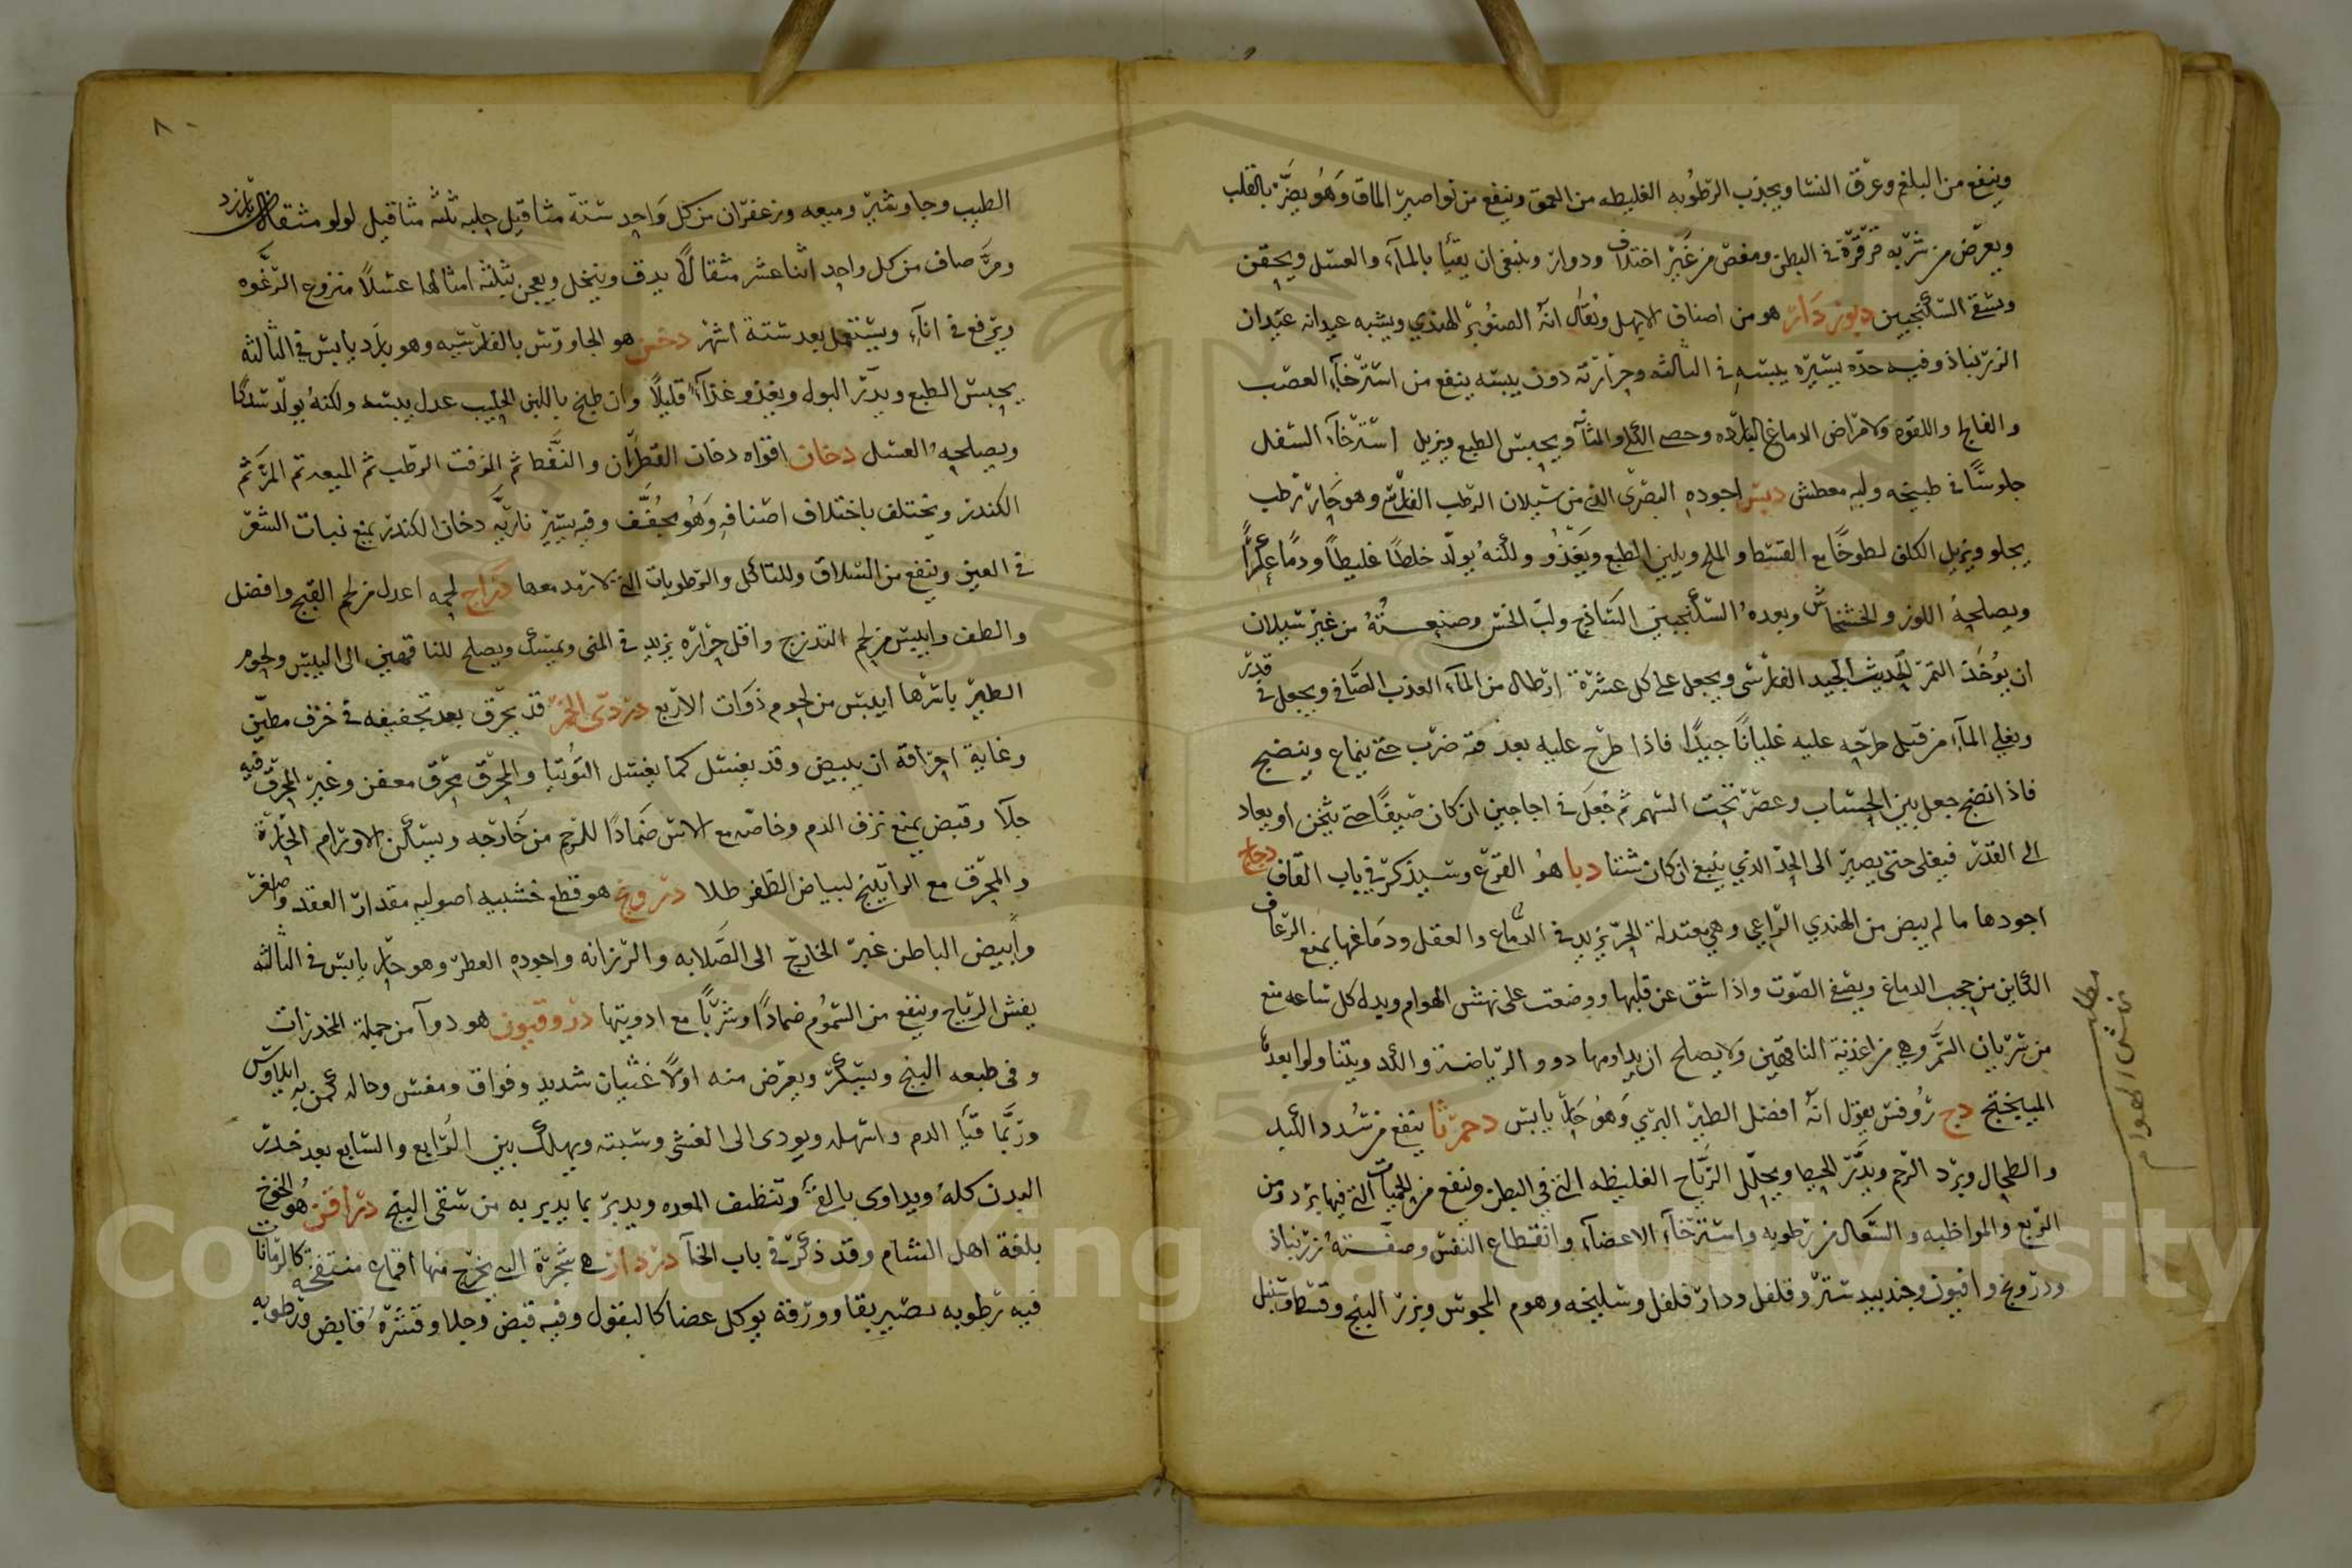 وينفع من البلغم وعرق النسا ويجذب الرطوبه الغليظه من العمق وينفع من نواصير الماق وهو يضر بالقلب
ويعرض من شربه قرقرة في البطن ومغص من غير اختلاف ودوار وينبغي ان يقيّأ بالمآء والعسل ويحقن
ويسقى السكنجبين ديودار هو من اصناف الابهل ويقال انه الصنوبر الهندي ويشبه عيدانه عيدان
الزرنباذ وفيه حدّه يسيره يبسه في الثالثه وحرارته دون يبسه ينفع من استرخآء العصب
والفالج واللقوه ولامراض الدماغ البارده وحصى الكلى والمثانه ويحبس الطبع ويزيل استرخآء السفل
جلوسًا في طبيخه ولبنه معطش دبس اجوده البصرى الذي من سيلان الرطب الفارسي وهو حار رطب
يجلو ويزيل الكلف لطوخًا مع القسط والملح ويلين الطبع ويغذو ولكنه يولّد خلطًا غليظًا ودمًا عكرًا
ويصلحه اللوز والخشخاش وبعده السكنجبين الساذج ولبّ الخس وصنعته من غير سيلان
ان يؤخذ التمر الحديث الجيد الفارسي ويجعل على كل عشرة ارطال من المآء العذب الصافي ويجعل في قدر
ويغلي المآء من قبل طرحه عليه غليانًا جيدًا فاذا طرح عليه بعد فيه ضرب حتى ينماع وينضج
فاذا نضج جعل بين الجساب وعصر تحت السهم ثم جعل في اجاجين ان كان صيفًا حتى يثخن او يعاد
الى القدر فيغلى حتى يصير الى الحدّ الذي ينبغي ان كان شتا دبا هو القرع وسيذكر في باب القاف دجاج
اجودها ما لم يبض من الهندي الراعي وهي معتدلة الحر يزيد في الدماغ والعقل ودماغها يمنع الرعاف
الكاين من حجب الدماغ ويصفي الصوت واذا شق عن قلبها ووضعت على نهش الهوام ويبدل كل ساعه منع
من سريان السمّ وهي من اغذية الناقهين ولا يصلح ان يداومها ذوو الرياضة والكد ويتناولوا بعدها
الميبختج دج روفس يقول انه افضل الطير البري وهو حار يابس دحمرثا ينفع من سدد الكبد
والطحال وبرد الرحم ويدرّ الحيض ويحلل الرياح الغليظه التي في البطن وينفع من الحميات التي فيها برد ومن
الربع والمواظبه والسعال من رطوبه واسترخآء الاعضآء وانقطاع النفس وصفته زرنباذ
ودرونج وافيون وجندبيدستر وفلفل ودار فلفل وسليخه وهوم المجوس وبزر البنج وقسط وسنبل
نهش الهوام
٨٠
الطيب وجاوشير وميعه وزعفران من كل واحد ستة مثاقيل حلبه ثلثه مثاقيل لولو مثقالان بارزد
ومرّ صاف من كل واحد اثنا عشر مثقالًا يدق وينخل ويعجن بثلثه امثالها عسلًا منزوع الرغوه
ويرفع في انآء ويستعمل بعد ستة اشهر دخن هو الجاورس بالفارسيه وهو بارد يابس في الثالثه
يحبس الطبع ويدرّ البول ويغذو غذآءً قليلًا وان طبخ باللبن الحليب عدل يبسه ولكنه يولّد سددًا
ويصلحه العسل دخان اقواه دخان القطران والنفط ثم الزفت الرطب ثم الميعه ثم المرّ ثم
الكندر ويختلف باختلاف اصنافه وهو مجفف وفيه يسير ناريّه دخان الكندر يمنع نبات الشعر
في العين وينفع من السلاق وللتاكل والرطوبات التي لا رمد معها دراج لحمه اعدل من لحم القبج وافضل
والطف وايبس من لحم التدرج واقل حراره يزيد في المنى ويمسك ويصلح للناقهين الى اليبس ولحوم
الطير باسرها ايبس من لحوم ذوات الاربع دردى الخمر قد يحرق بعد تجفيفه في خزف مطيّن
وغاية احراقه ان يبيض وقد يغسل كما يغسل التوتيا والمحرق محرق معفن وغير المحرق فيه
جلآ وقبض يمنع نزف الدم وخاصّه مع الاس ضمادًا للرحم من خارجه ويسكن الاورام الحارّة
والمحرق مع الراتينج لبياض الظفر طلا درونج هو قطع خشبيه اصوليه مقدار العقد واصغر
وابيض الباطن غير الخارج الى الصلابه والرزانه واجوده العطر وهو حار يابس في الثالثه
يفش الرياح وينفع من السموم ضمادًا وشربًا مع ادويتها دروقنيون هو دوآ من جملة المخدرات
وفي طبعه البنج ويسكر ويعرض منه اولًا غثيان شديد وفواق ومغس وحاله كمن به ايلاوس
وربّما قيّأ الدم واسهله ويودى الى الغشي وسبته ويهلك بين الرابع والسابع بعد خدر
البدن كله ويداوى بالقئ وتنظيف المعده ويدبر بما يدبر به من سقى البنج دراقن هو الخوخ
بلغة اهل الشام وقد ذكر في باب الخآ دردار هي شجرة البق يخرج منها اقماع منتفخه كالرمانات
فيه رطوبه تصير بقا وورقه يوكل غضا كالبقول وفيه قبض وجلا وقشره قابض ورطوبه
Copyright © King Saud University
1957